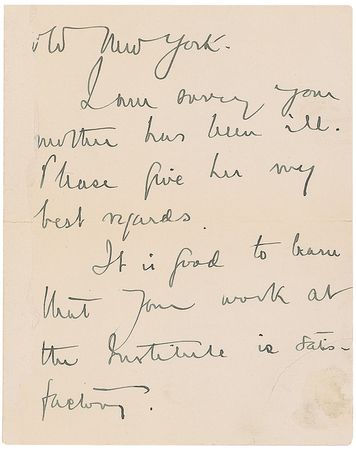 old New York.
I am sorry your
mother has been ill.
Please give her my
best regards.
It is good to learn
that your work at
the Institute is satis-
factory.